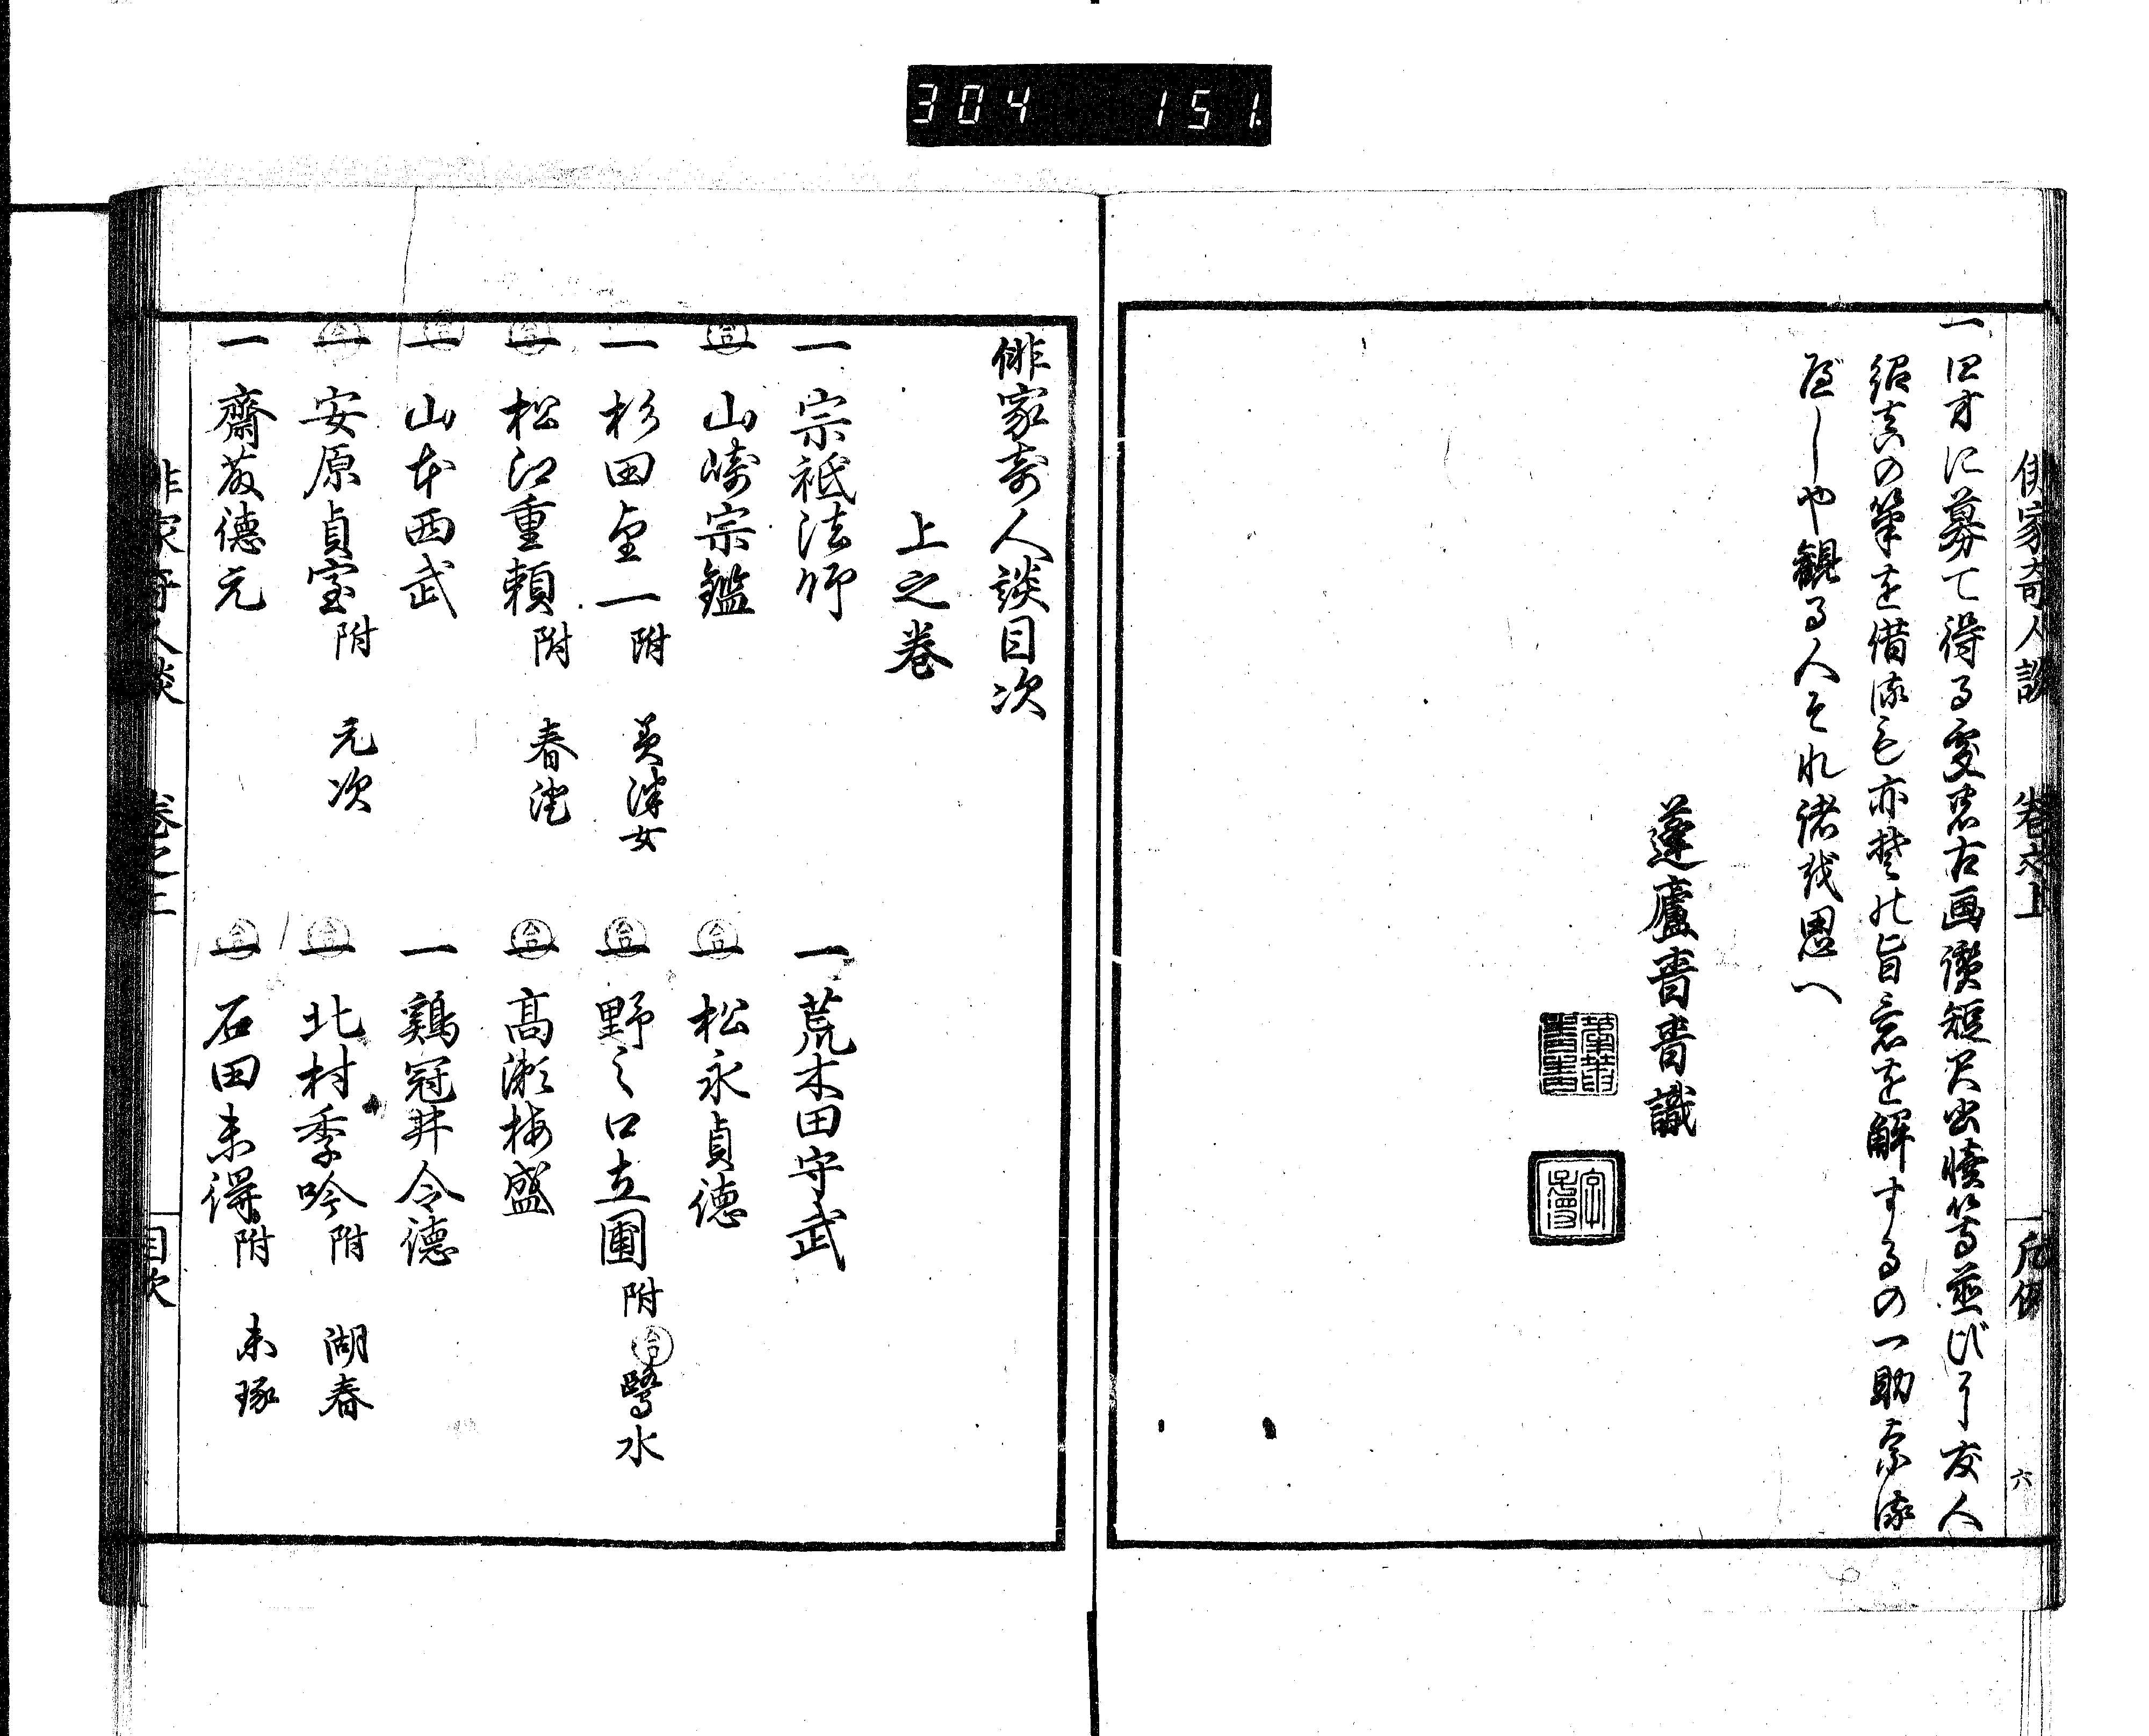 304 151.
俳家奇人談 巻之上 凡例 六
一四方に募て得る処の古画讃短尺出牘等並びに友人
紹真の筆を借るも亦其の旨意を解するの一助なる
べしや観る人それ諸を思へ
蓬廬青青識
俳家奇人談目次
上之巻
一 宗祇法師
一 荒木田守武
一 山崎宗鑑
一 松永貞徳
一 杉田望一 附 美津女
一 野々口立圃 附 鷺水
一 松江重頼 附 春澄
一 高瀬梅盛
一 山本西武
一 鶏冠井令徳
一 安原貞室 附 元次
一 北村季吟 附 湖春
一 齋藤徳元
一 石田未得 附 未琢
俳家奇人談 巻之上 目次